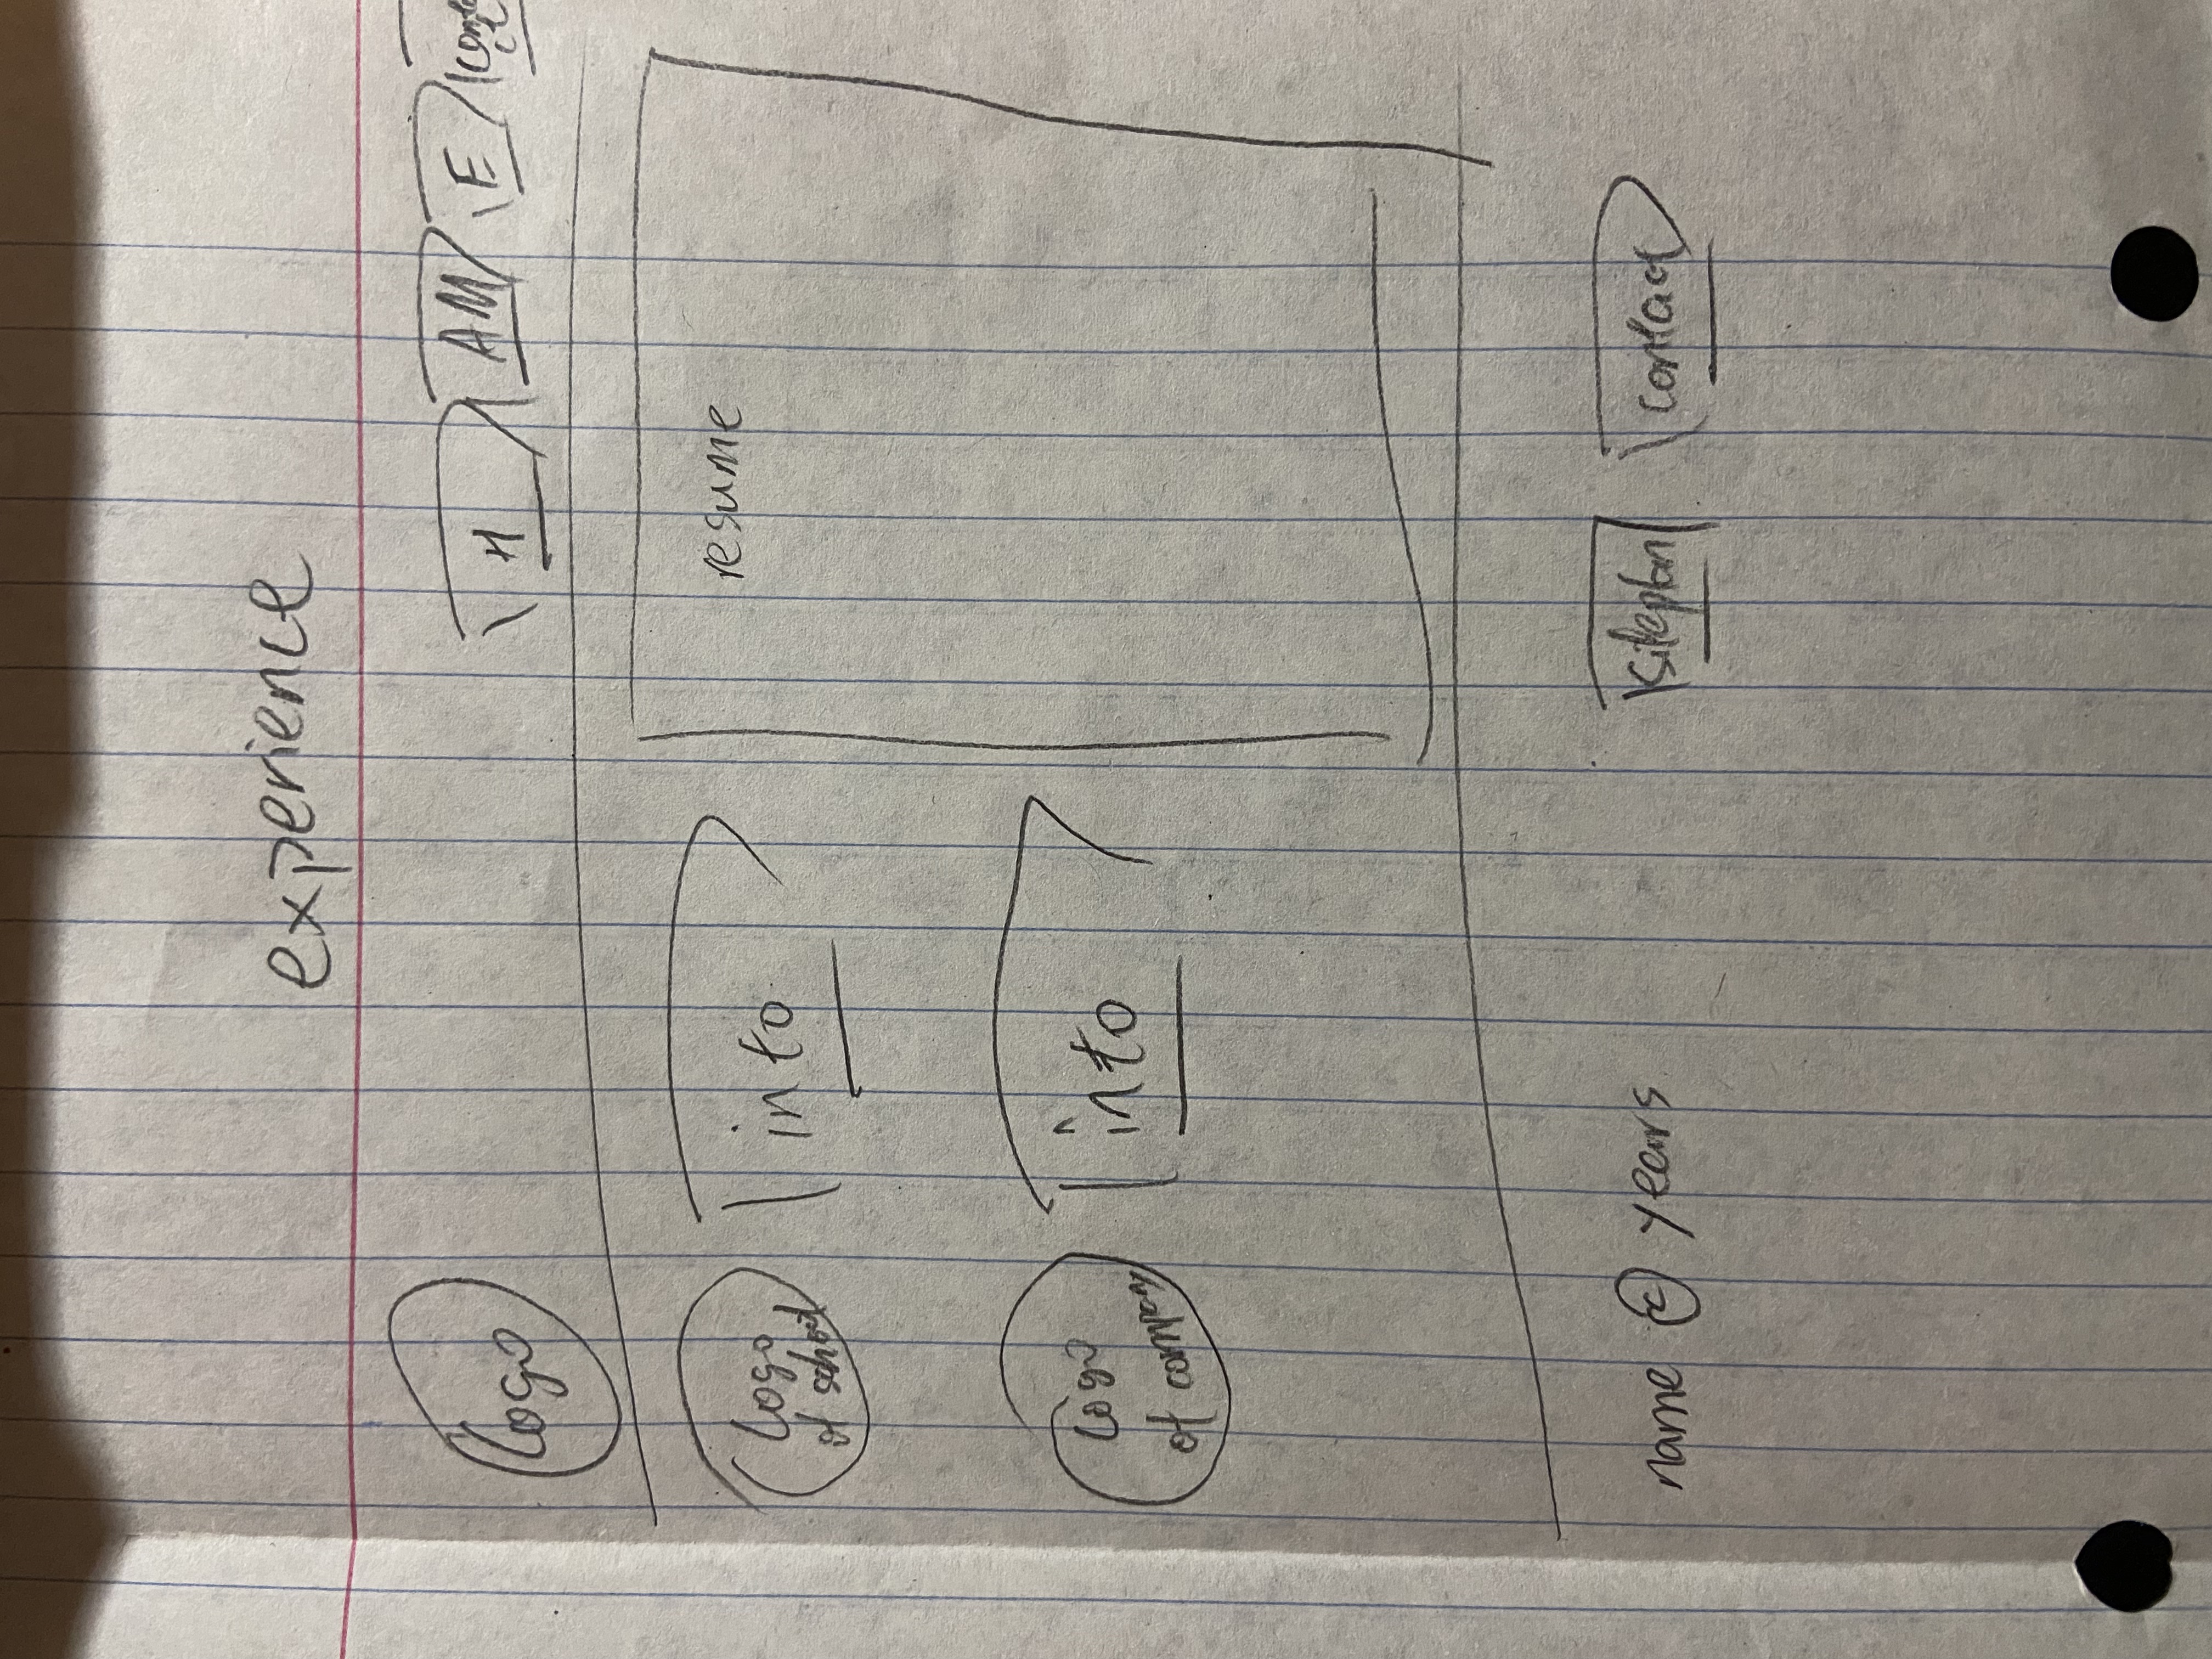 experience
Logo
H
AM
E
Logo
of school
info
resume
Logo
of company
info
name © years
siteplan
contact